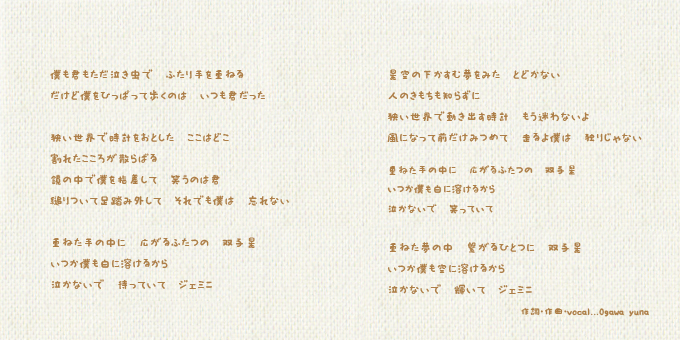 僕も君もただ泣き虫で　ふたり手を重ねる
だけど僕をひっぱって歩くのは　いつも君だった
狭い世界で時計をおとした　ここはどこ
割れたこころが散らばる
鏡の中で僕を指差して　笑うのは君
縋りついて足踏み外して　それでも僕は　忘れない
重ねた手の中に　広がるふたつの　双子星
いつか僕も白に溶けるから
泣かないで　待っていて　ジェミニ
星空の下かすむ夢をみた　とどかない
人のきもちも知らずに
狭い世界で動き出す時計　もう迷わないよ
風になって前だけみつめて　走るよ僕は　独りじゃない
重ねた手の中に　広がるふたつの　双子星
いつか僕も白に溶けるから
泣かないで　笑っていて
重ねた夢の中　繋がるひとつに　双子星
いつか僕も空に溶けるから
泣かないで　輝いて　ジェミニ
作詞・作曲・vocal...Ogawa yuna